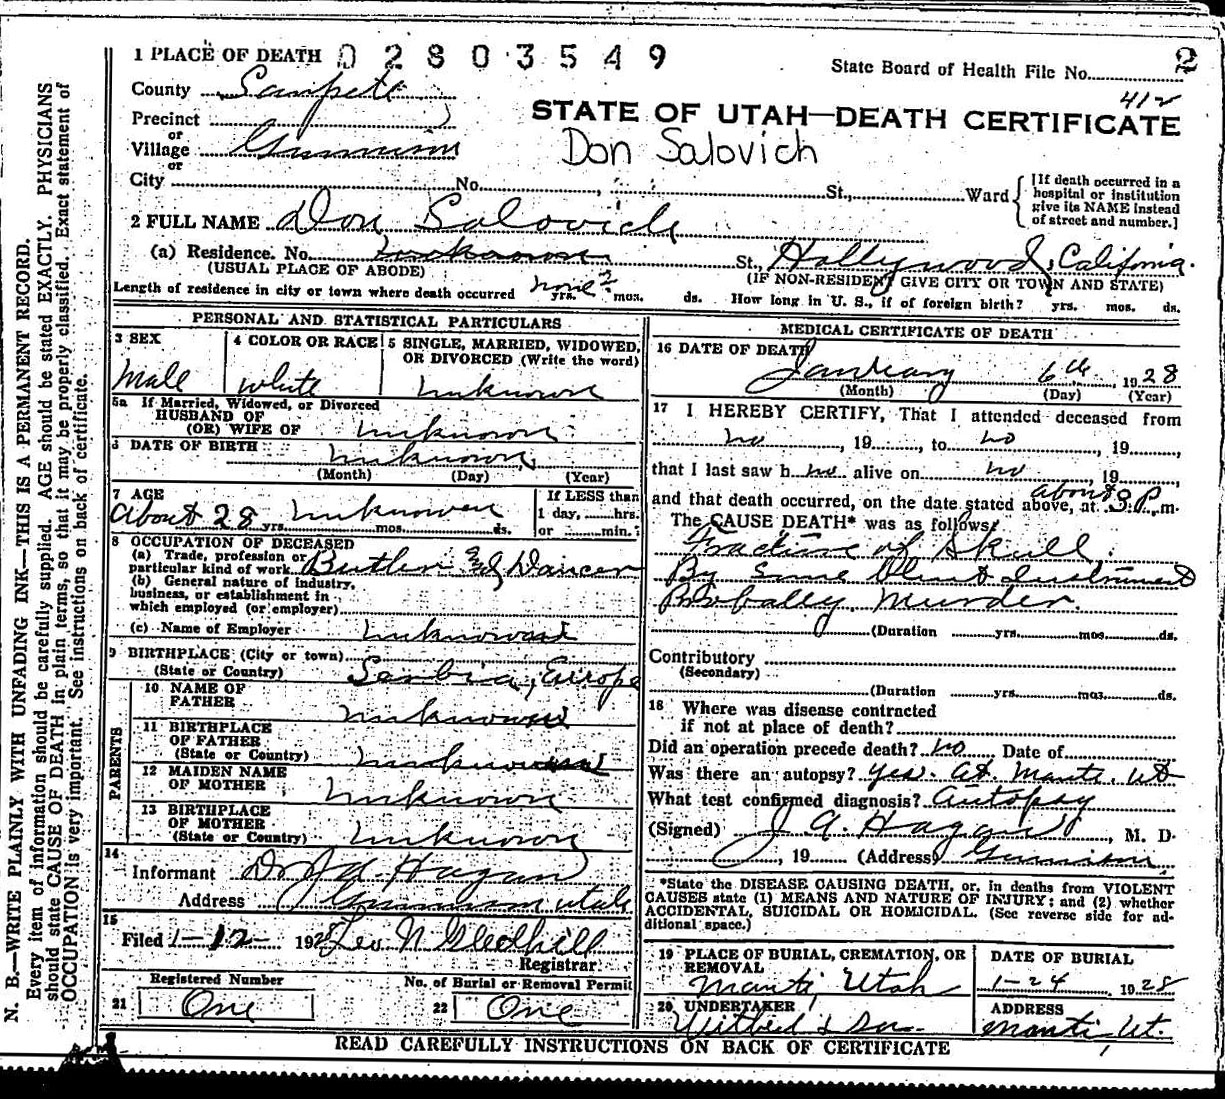 1 PLACE OF DEATH 02803549
2
State Board of Health File No.
412
County Sanpete
STATE OF UTAH—DEATH CERTIFICATE
Precinct
or
Village Gunnison
Don Salovich
or
City No. St., Ward
[If death occurred in a
hospital or institution
give its NAME instead
of street and number.]
2 FULL NAME Don Salovich
(a) Residence. No. unknown St. Hollywood, California.
(USUAL PLACE OF ABODE) (IF NON-RESIDENT GIVE CITY OR TOWN AND STATE)
Length of residence in city or town where death occurred none yrs. mos. ds. How long in U. S., if of foreign birth? yrs. mos. ds.
PERSONAL AND STATISTICAL PARTICULARS
3 SEX
Male
4 COLOR OR RACE
white
5 SINGLE, MARRIED, WIDOWED,
OR DIVORCED (Write the word)
unknown
5a If Married, Widowed, or Divorced
HUSBAND OF
(OR) WIFE OF unknown
6 DATE OF BIRTH unknown
(Month) (Day) (Year)
7 AGE
About 28 yrs. unknown mos. ds.
If LESS than
1 day, hrs.
or min.
8 OCCUPATION OF DECEASED
(a) Trade, profession or
particular kind of work Butler and Dancer
(b) General nature of industry,
business, or establishment in
which employed (or employer)
(c) Name of Employer unknown
9 BIRTHPLACE (City or town)
(State or Country) Serbia, Europe
PARENTS
10 NAME OF
FATHER unknown
11 BIRTHPLACE
OF FATHER
(State or Country) unknown
12 MAIDEN NAME
OF MOTHER unknown
13 BIRTHPLACE
OF MOTHER
(State or Country) unknown
14
Informant Dr J A Hagan
Address Gunnison utah
15
Filed 1-12- 1928 Leo N Gledhill
Registrar
Registered Number
21 One
No. of Burial or Removal Permit
22 One
MEDICAL CERTIFICATE OF DEATH
16 DATE OF DEATH
January 6th, 1928
(Month) (Day) (Year)
17 I HEREBY CERTIFY, That I attended deceased from
no, 19, to no, 19,
that I last saw h no alive on no, 19
and that death occurred, on the date stated above, at about 8 P. m.
The CAUSE DEATH* was as follows:
Fracture of Skull.
By Some Blunt Instrument
Probally Murder.
(Duration yrs. mos. ds.
Contributory
(Secondary)
(Duration yrs. mos. ds.
18 Where was disease contracted
if not at place of death?
Did an operation precede death? no Date of
Was there an autopsy? yes. At. Manti. Ut
What test confirmed diagnosis? Autopsy
(Signed) J A. Hagan, M. D.
, 19 (Address) Gunnison
*State the DISEASE CAUSING DEATH, or, in deaths from VIOLENT
CAUSES state (1) MEANS AND NATURE OF INJURY; and (2) whether
ACCIDENTAL, SUICIDAL OR HOMICIDAL. (See reverse side for ad-
ditional space.)
19 PLACE OF BURIAL, CREMATION, OR
REMOVAL
Manti, Utah
DATE OF BURIAL
1-24 1928
20 UNDERTAKER
& Son
ADDRESS
Manti, Ut.
READ CAREFULLY INSTRUCTIONS ON BACK OF CERTIFICATE
N. B.—WRITE PLAINLY WITH UNFADING INK—THIS IS A PERMANENT RECORD.
Every item of information should be carefully supplied. AGE should be stated EXACTLY. PHYSICIANS
should state CAUSE OF DEATH in plain terms, so that it may be properly classified. Exact statement of
OCCUPATION is very important. See instructions on back of certificate.